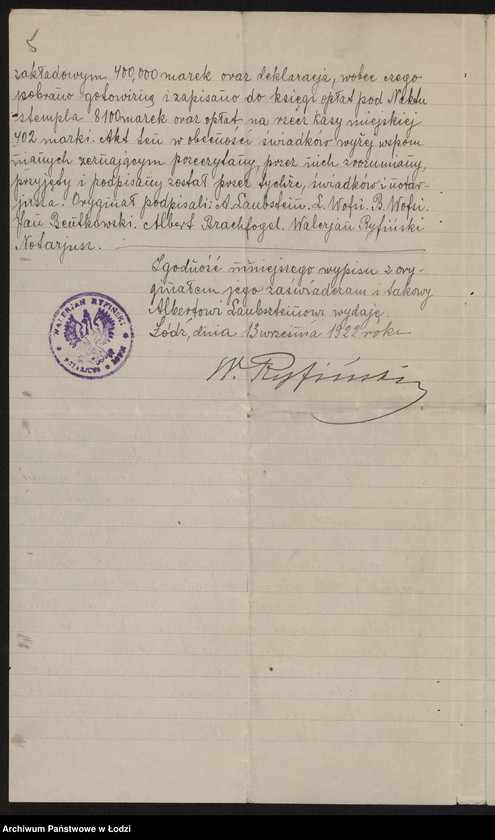 5
zakładowym 400,000 marek oraz deklaracja, wobec czego
pobrano gotowizną i zapisano do księgi opłat pod № aktu
stempla 8100 marek oraz opłat na rzecz kasy miejskiej
402 marki. Akt ten w obecności świadków wyżej wspom
nianych zeznającym przeczytany, przez nich zrozumiany,
przyjęty i podpisany został przez tychże, świadków i notar-
jusza. Oryginał podpisali: A Laubstein. L. Wofsi. B. Wofsi.
Jan Bentkowski. Albert Brachfogel. Walerjan Ryfiński
Notarjusz.
Zgodność niniejszego wypisu z ory-
ginałem jego zaświadczam i takowy
Albertowi Laubsteinowi wydaję.
Łódź, dnia 13 września 1922 roku
W. Ryfiński
WALERJAN RYFIŃSKI
Archiwum Państwowe w Łodzi